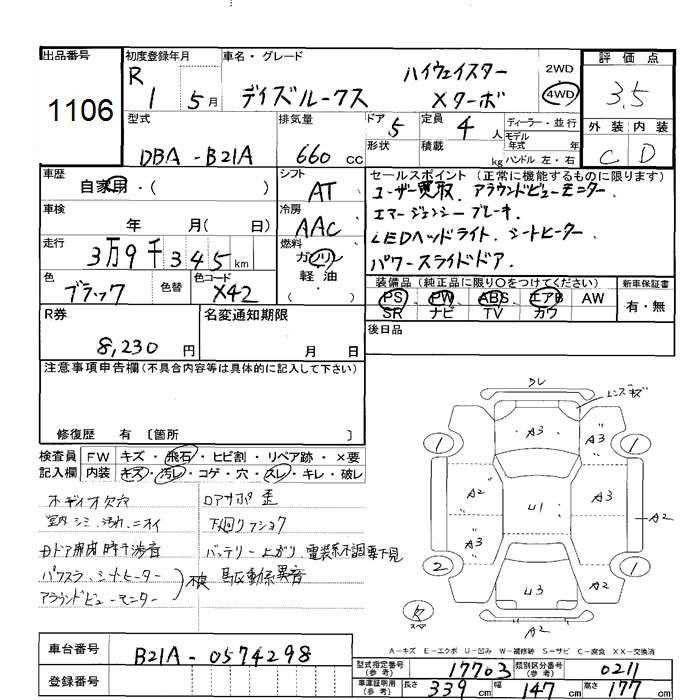 出品番号
1106
初度登録年月
R 1 5月
車名・グレード
ハイウェイスター
デイズルークス Xターボ
2WD
4WD
評価点
3.5
外装 内装
C D
型式
DBA - B21A
排気量
660 cc
ドア 5
定員 4 人
形状
積載 kg
ディーラー・並行
モデル年式 年
ハンドル 左・右
車歴
自家用・( )
シフト
AT
車検
年 月( 日)
冷房
AAC
走行
3万9千345km
燃料
ガソリン
軽油
( )
色
ブラック
色替
色コード
X42
セールスポイント (正常に機能するものに限ります)
ユーザー買取. アラウンドビューモニター.
エマージェンシーブレーキ.
LEDヘッドライト. シートヒーター.
パワースライドドア.
装備品 (純正品に限り○をつけてください)
PS PW ABS エアB AW
SR ナビ TV カワ
新車保証書
有・無
R券
8,230 円
名変通知期限
月 日
後日品
注意事項申告欄(不具合内容等は具体的に記入して下さい)
修復歴 有 〔箇所 〕
検査員記入欄
FW キズ・飛石・ヒビ割・リペア跡・×要
内装 キズ・汚レ・コゲ・穴・スレ・キレ・破レ
ボディ小欠穴
室内シミ.汚れ.ニオイ
ロアサポ歪
下廻りアショク
バッテリー上がり.電装系不調要下見
パワスラ.シートヒーター
アラウンドビューモニター
不良
駆動系異音
ウレ
レンズキズ
A3
A3
1
1
A2
U1
A3
A2
A3
2
1
U3
A2
A2
スペア
A-キズ E-エクボ U-凹み W-補修跡 S-サビ C-腐食 XX-交換済
車台番号
B21A - 0574298
登録番号
型式指定番号(参考) 17703
類別区分番号(参考) 0211
車庫証明用(参考) 長さ 339 cm 幅 147 cm 高さ 177 cm